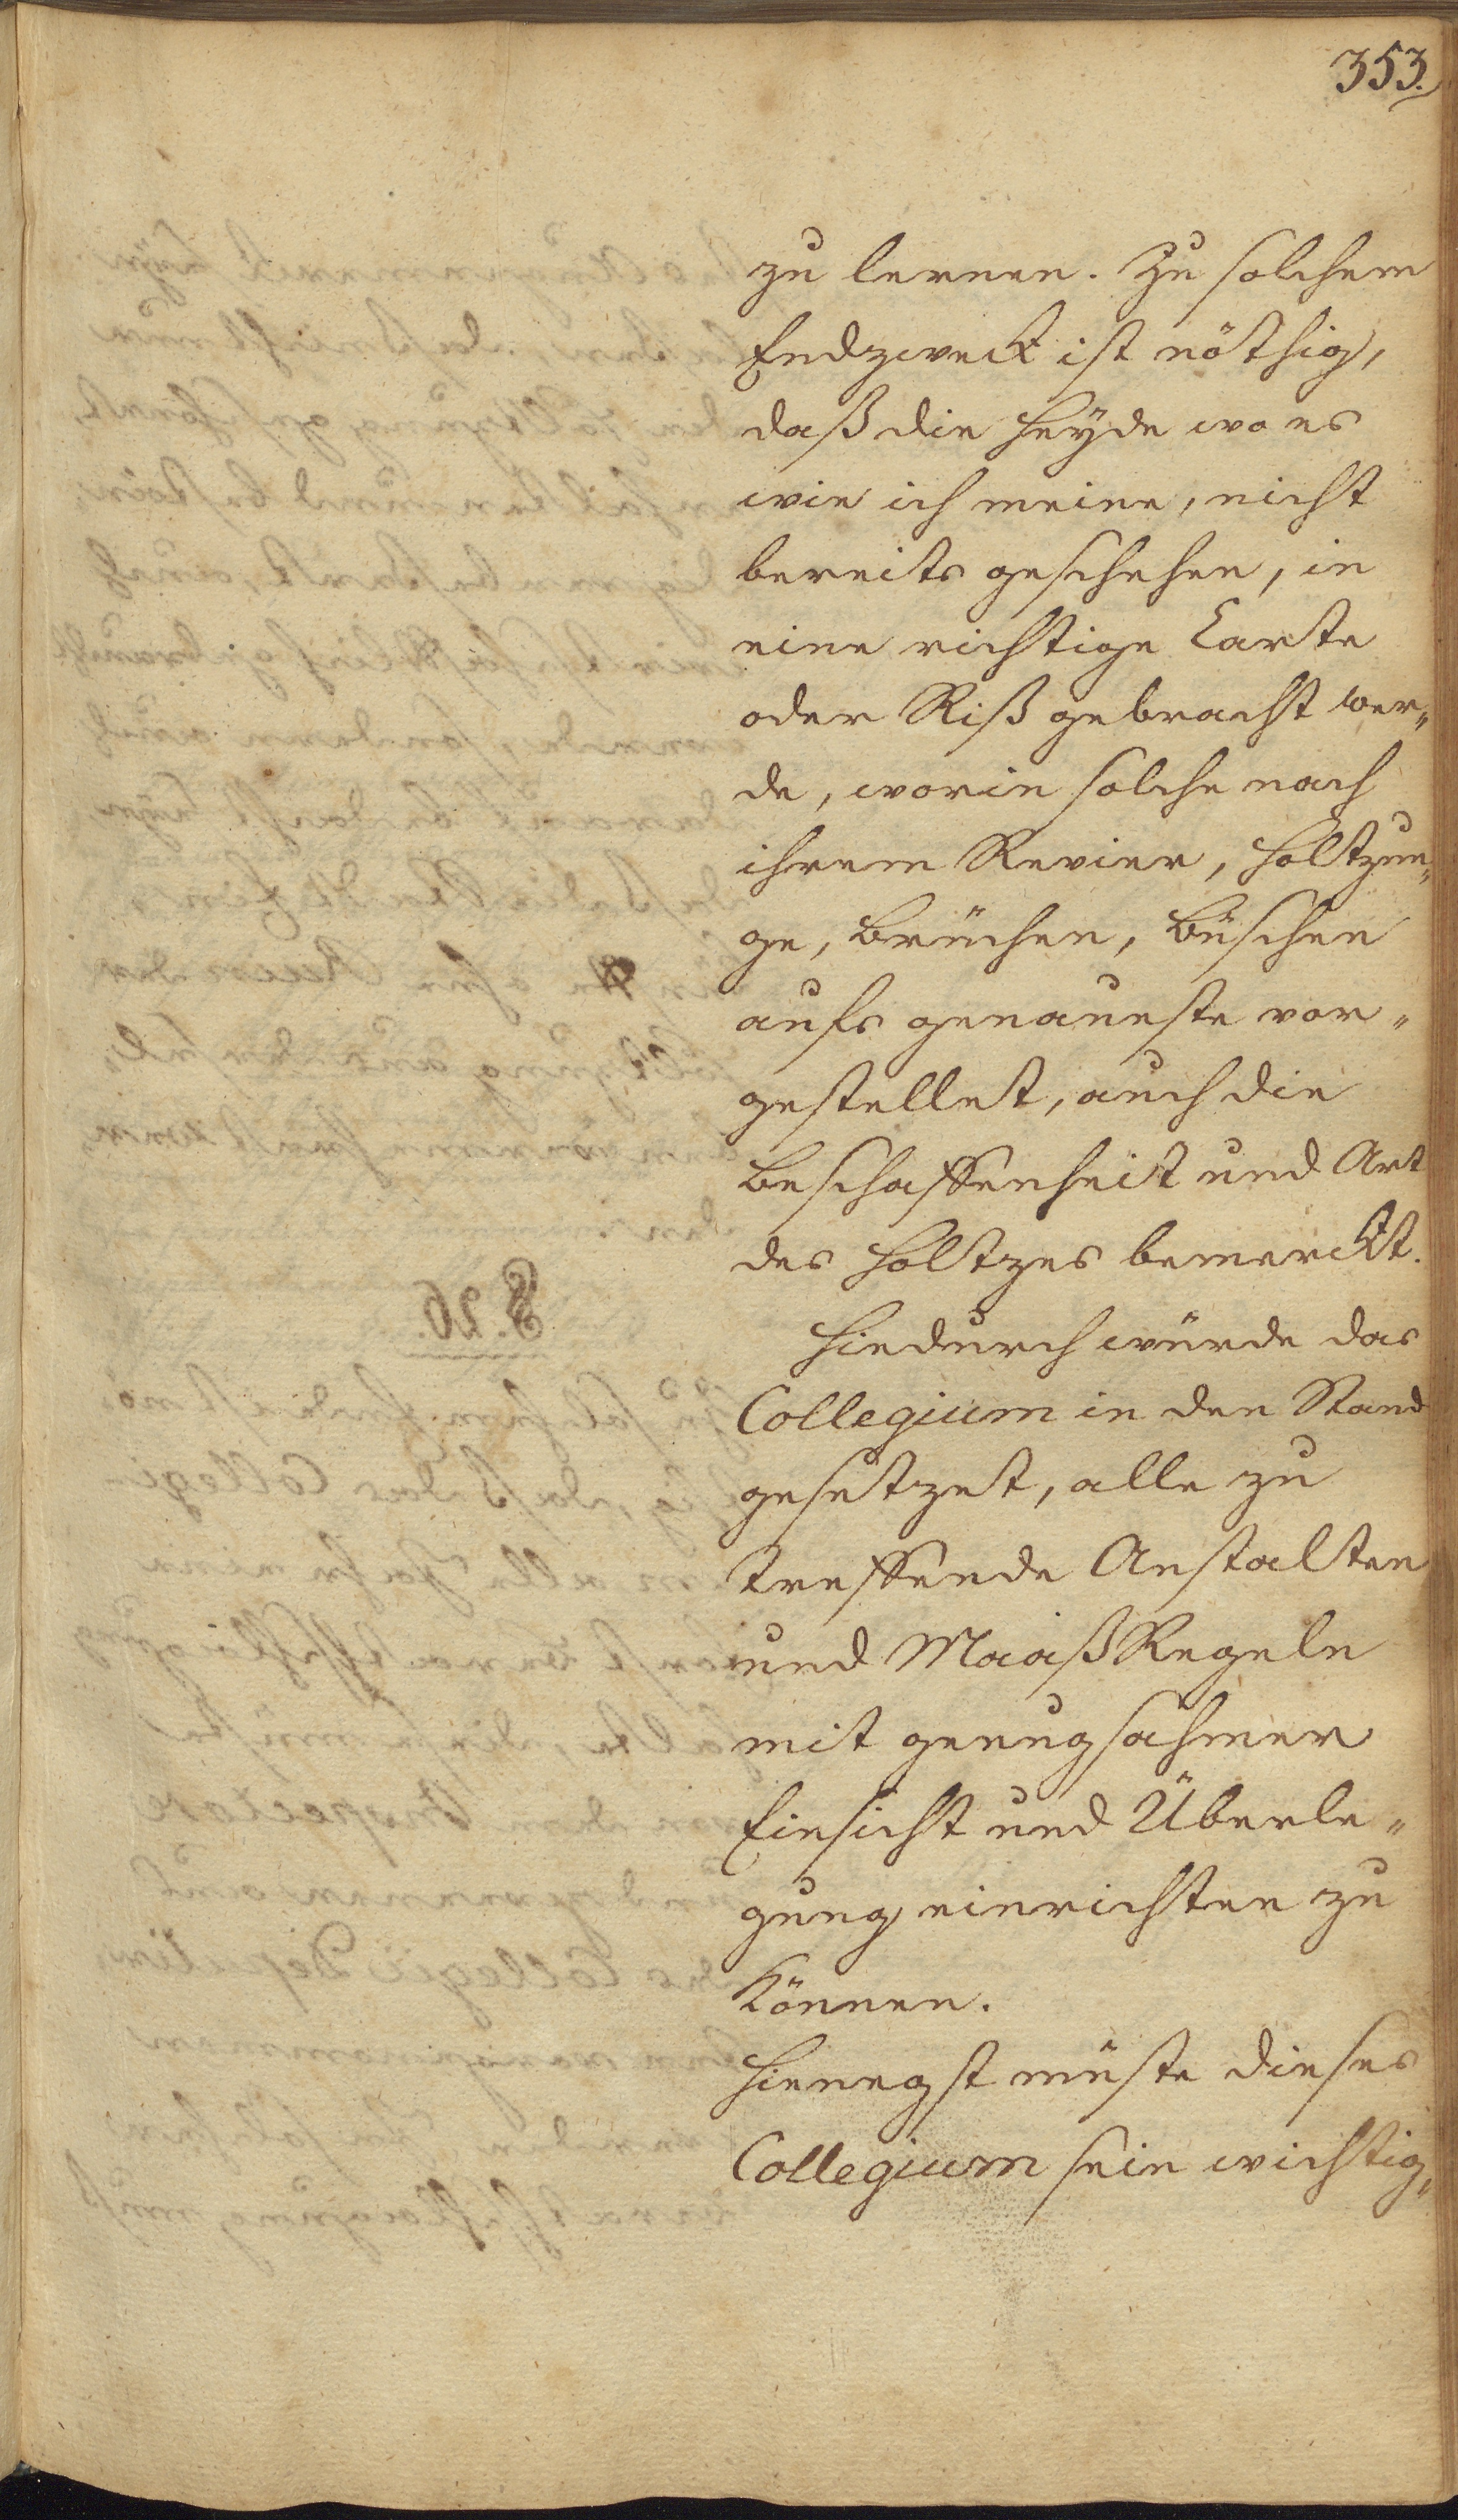 353.
zu lernen. Zu solchem
Endzweck ist nöthig,
daß die Heyde wo es
wie ich meine, nicht
bereits geschehen, in
eine richtige Carte
oder Riß gebracht wer„
de, worin solche nach
ihrem Revier, Holtzun„
ge, Brüchen, Büschen
aufs genaueste vor„
gestellet, auch die
Beschaffenheit und Art
des Holtzes bemerckt.
Hiedurch würde das
Collegium in den Stand
gesetzet, alle zu
treffende Anstalten
und MaaßRegeln
mit genugsahmer
Einsicht und Überle„
gung einrichten zu
können.
Hienegst müste dieses
Collegium sein wichtig„